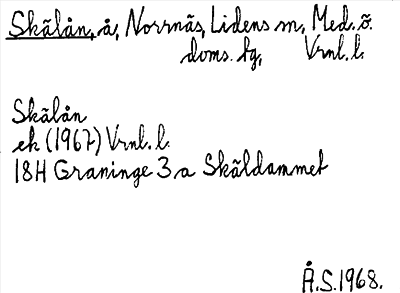 Skälån, å, Norrnäs, Lidens sn, Med. ö.
doms. hg, Vrnl. l.
Skälån
ek (1967) Vrnl. l.
18H Graninge 3 a Skäldammet
Å.S. 1968.